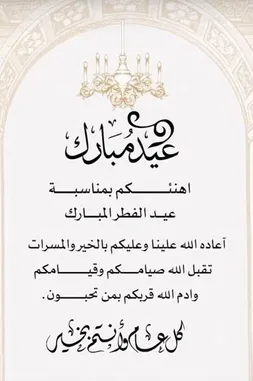 عيد مبارك
اهنئكم بمناسبة
عيد الفطر المبارك
أعاده الله علينا وعليكم بالخير والمسرات
تقبل الله صيامكم وقيامكم
وادم الله قربكم بمن تحبون.
كل عام وأنتم بخير